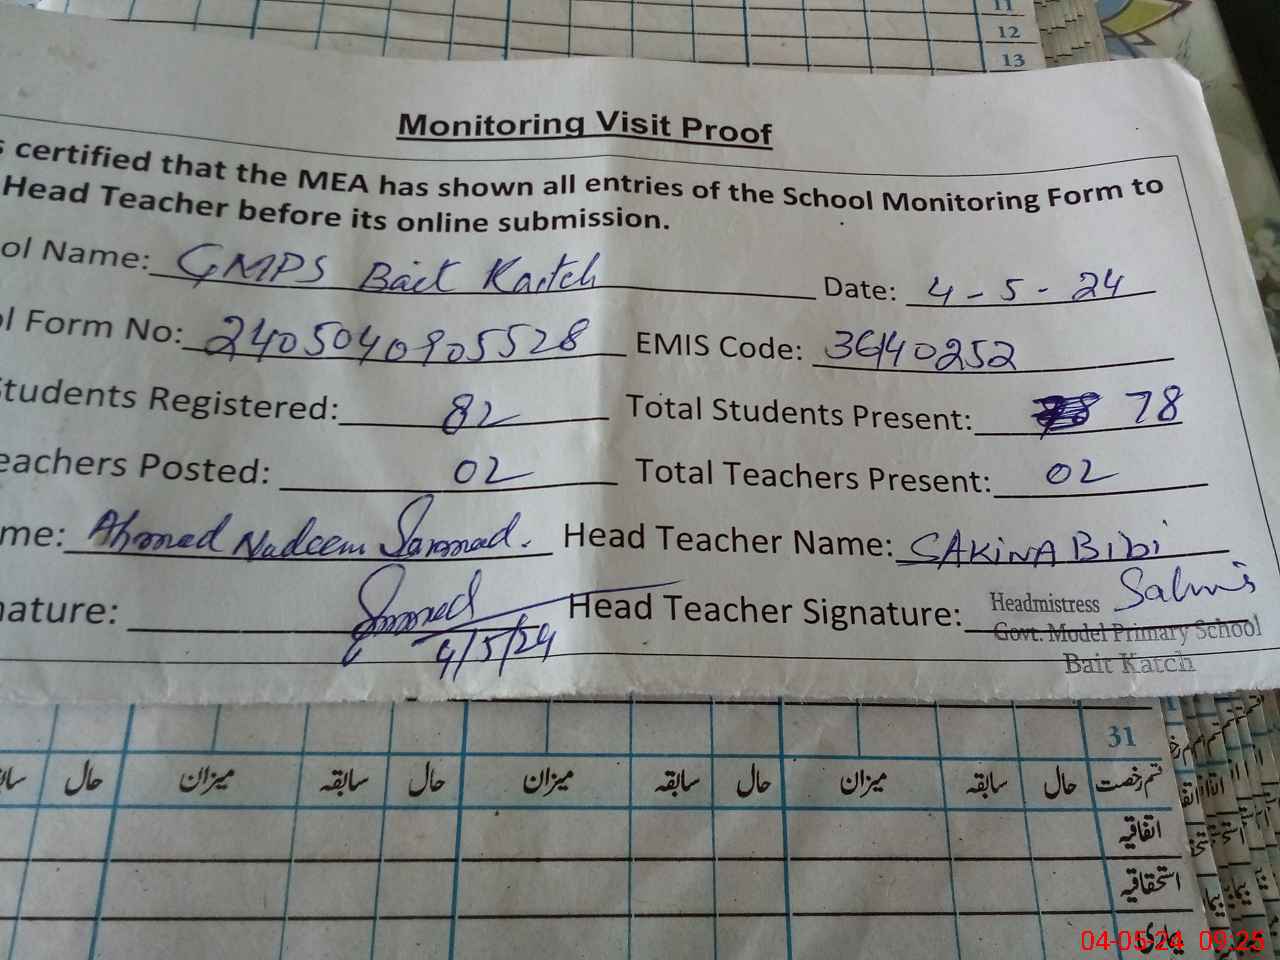 11
12
13
Monitoring Visit Proof
s certified that the MEA has shown all entries of the School Monitoring Form to
Head Teacher before its online submission.
ol Name: GMPS Bait Kaitch Date: 4-5-24
ol Form No: 2405040905528 EMIS Code: 36140252
Students Registered: 82 Total Students Present: 78
eachers Posted: 02 Total Teachers Present: 02
me: Ahmad Nadeem Sarmad. Head Teacher Name: SAKINA BiBi
nature: 4/5/24 Head Teacher Signature:
Headmistress
Govt. Model Primary School
Bait Katch
31
قسم رخصت حال سابقہ میزان حال سابقہ میزان حال سابقہ میزان حال
اتفاقیہ
استحقاقیہ
بیماری
04-05-24 09:25